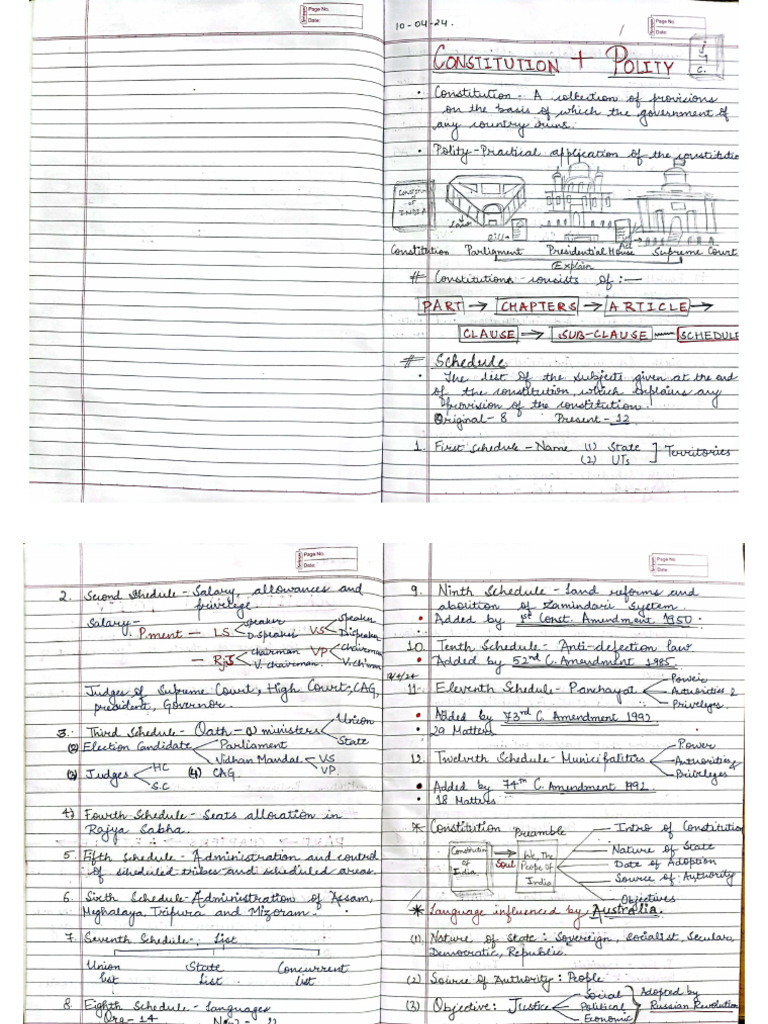 Page No.
Date:
10-04-24.
Page No.
Date:
CONSTITUTION + POLITY
• Constitution - A collection of provisions
on the basis of which the government of
any country runs.
• Polity - Practical application of the constitutio
Constitution of INDIA
Laws
Bill
Act
Constitution Parligment Presidential House Supreme Court
Explain
# Constitutions consists of :—
PART → CHAPTERS → ARTICLE →
CLAUSE → SUB-CLAUSE SCHEDULE
# Schedule
• The list of the subjects given at the end
of the constitution, which explains any
provision of the constitution.
Original - 8 Present - 12
1. First Schedule - Name (1) State
(2) UTs ] Territories
Page No.
Date:
2. Second Shedule - Salary, allowances and
privelege.
Salary -
P.ment - LS speaker D.speaker VS speaker D.speaker
- RjS chairman V. chairman. VP chairman V.ch'man
Judges of Supreme Court, High Court, CAG,
president, Governor.
3. Third Schedule - Oath - (1) ministers Union State
(2) Election Candidate Parliament
Vidhan Mandal VS VP.
(3) Judges HC S.C (4) CAG.
4) Fourth Schedule - Seats allocation in
Rajya Sabha.
5. Fifth Schedule - Administration and control
of scheduled tribes and scheduled areas.
6. Sixth Schedule - Administration of Assam,
Meghalaya, Tripura and Mizoram.
7. Seventh Schedule - List
Union List State List Concurrent List
8. Eighth Schedule - Languages
Org - 14
Page No.
Date:
9. Ninth Schedule - Land reforms and
abolition of Zamindari System.
• Added by 1st Const. Amendment 1950.
10. Tenth Schedule - Anti-defection law
• Added by 52nd C. Amendment 1985.
11. Eleventh Schedule - Panchayat Power Authorities & Priveleges.
• Added by 73rd C. Amendment 1992
• 29 Matters
12. Twelveth Schedule - Municipalities Power Authorities & Priveleges
• Added by 74th C. Amendment 1992.
• 18 Matters
* Constitution Preamble
Constitution of India
Soul
We, The People Of India
Intro of Constitution
Nature of State
Date of Adoption
Source of Authority
Objectives
* Language influenced by Australia.
(1) Nature of State : Sovereign, Socialist, Secular,
Democratic, Republic.
(2) Source of Authority : People
(3) Objective : Justice Social Political Economic Adopted by Russian Revolution